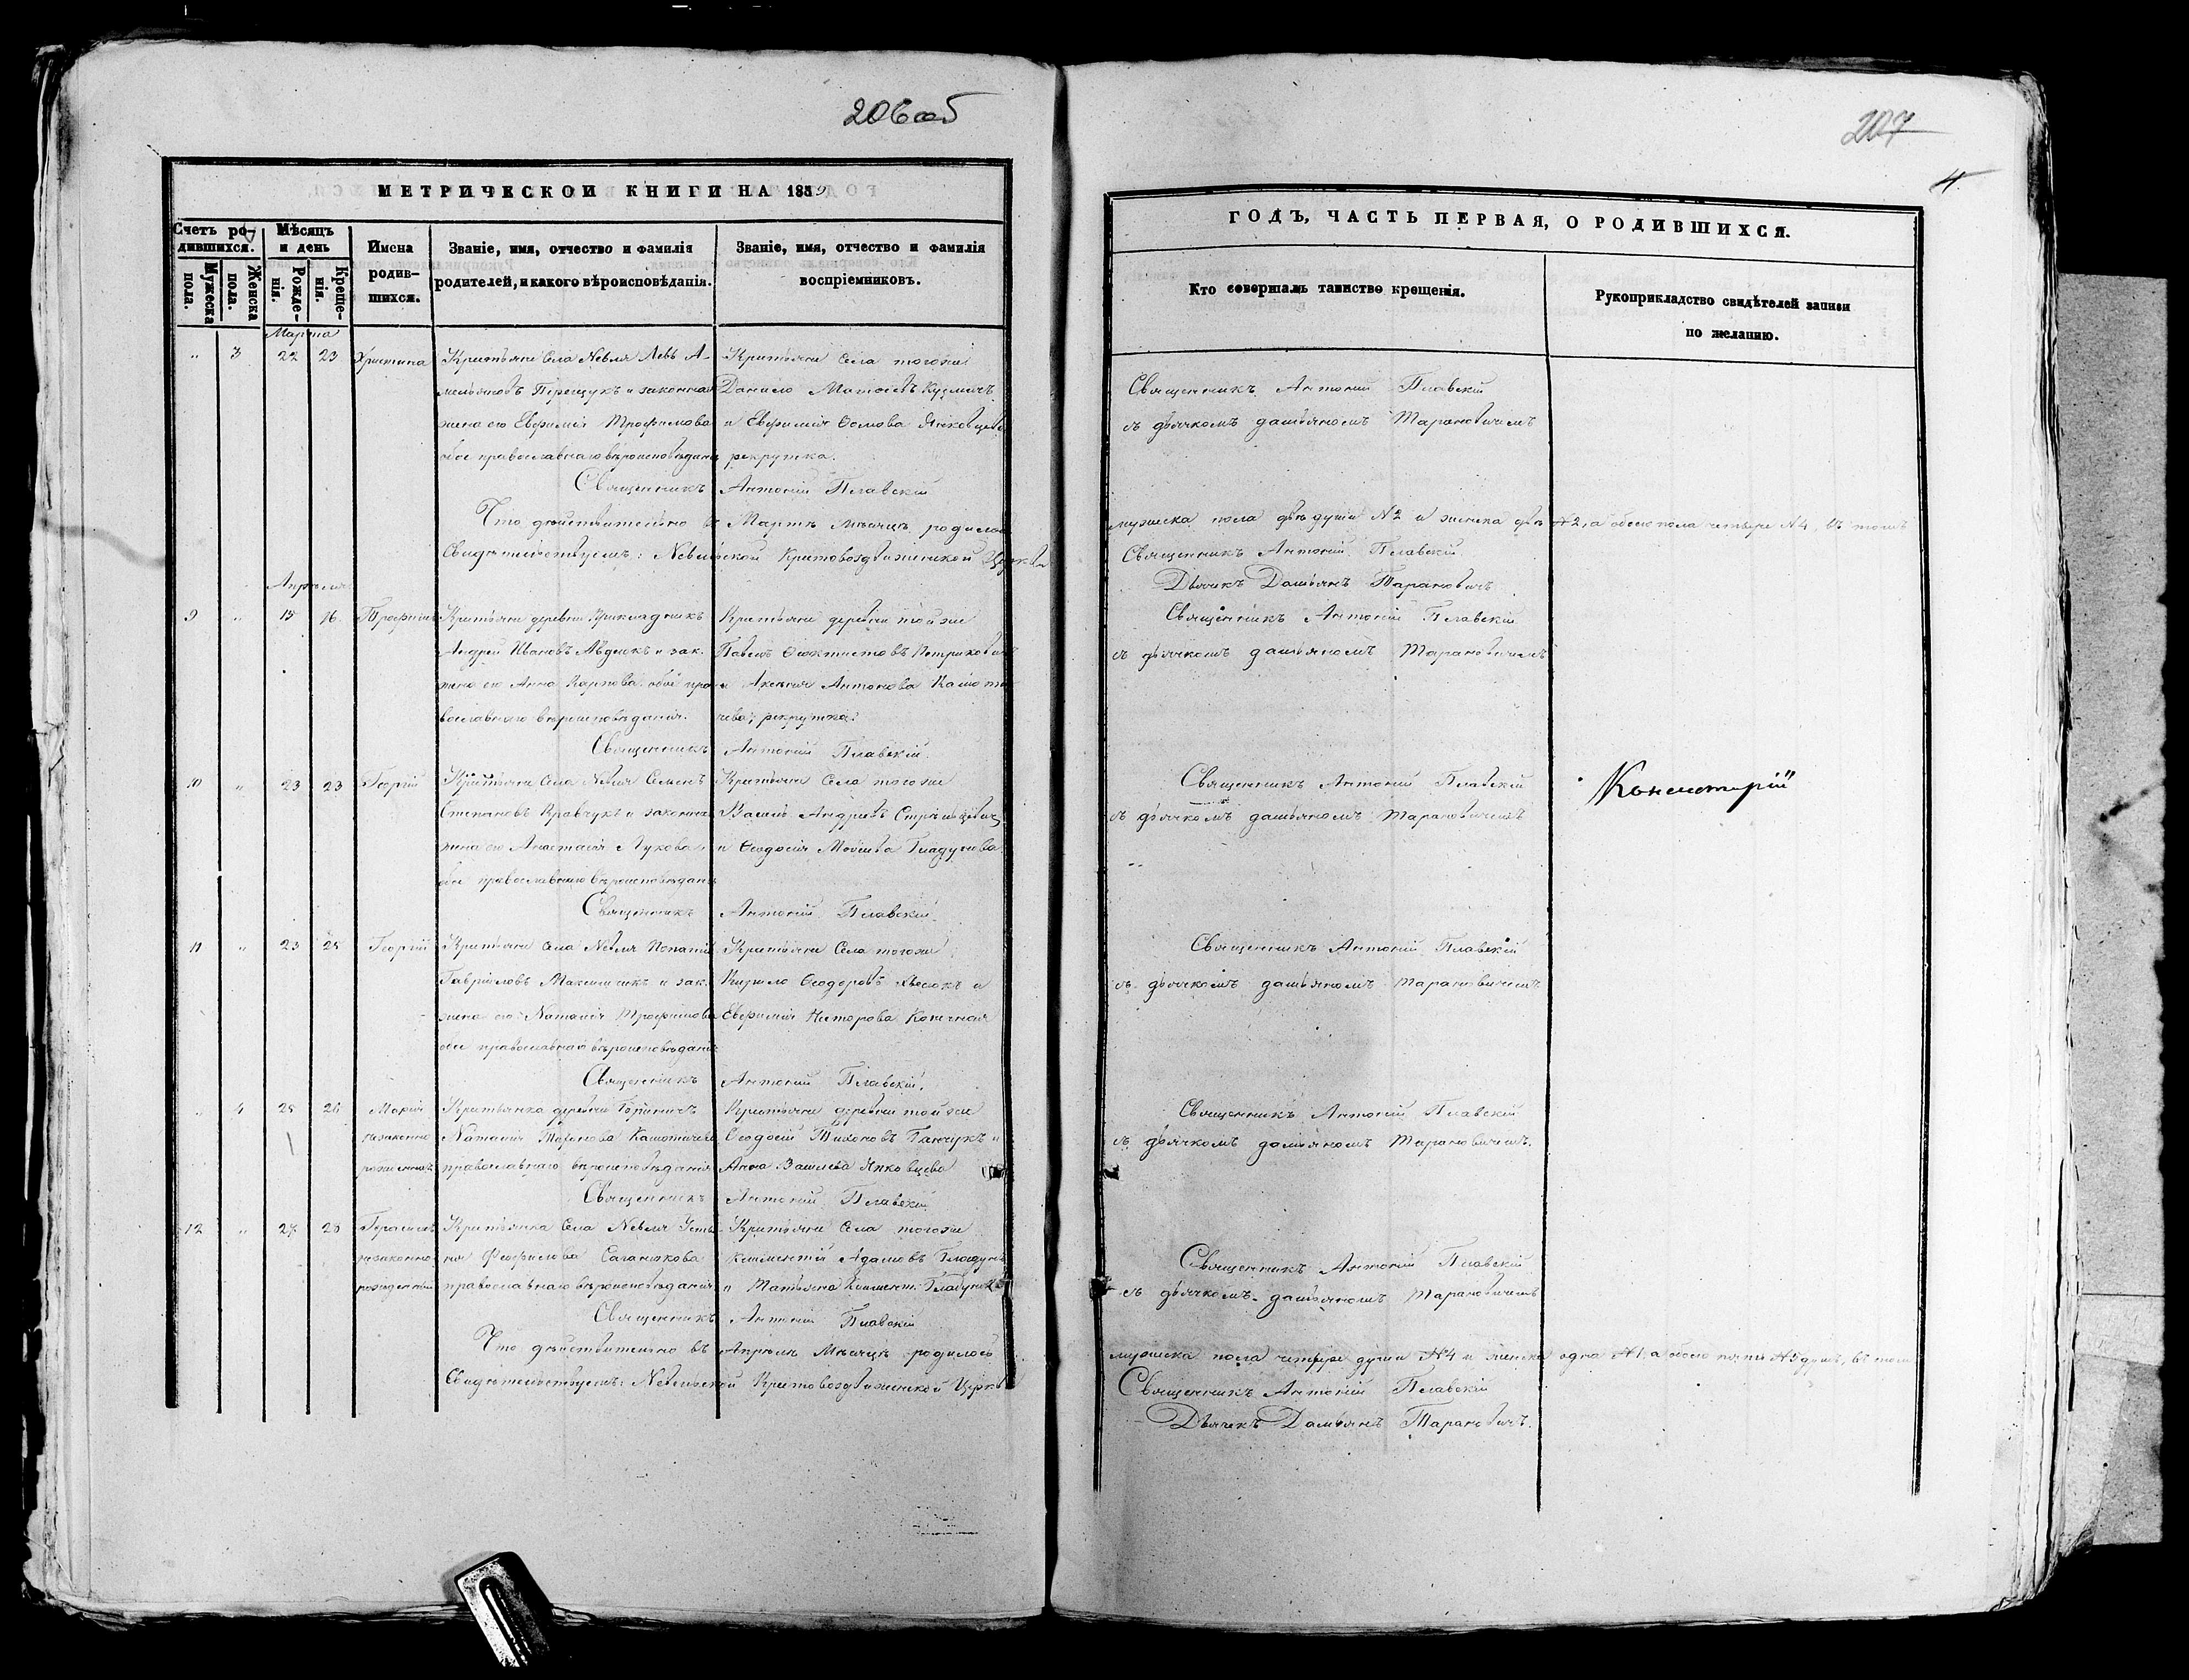 206 об
МЕТРИЧЕСКОЙ КНИГИ НА 1859
Счетъ родившихся.
Мужеска пола.
Женска пола.
Мѣсяцъ и день
Рожденія.
Крещенія.
Имена родившихся.
Званіе, имя, отчество и фамилія
родителей, и какого вѣроисповѣданія.
Званіе, имя, отчество и фамилія
воспріемниковъ.
Марта
" 3 22 23 Христина
Крестьяне Села Невля Левъ А-
и законная
жена его Евфимія Трофимова
обое православнаго вѣроисповѣданія
Крестьяне Села тогоже
Данило Матѳеевъ Кузмичъ
и Евфимія
рекрутка.
Священникъ Антоній Плавскій
Что дѣйствительно въ Мартѣ Мѣсяцѣ родилось
Свидѣтельствуемъ: Невельской Крестовоздвиженской Церкви
Апрѣля
9 " 15 16 Трофимъ
Крестьяне деревни
Андрей Ивановъ и зак.
жена его Анна Карпова обое пра-
вославнаго вѣроисповѣданія.
Крестьяне деревни тойже
Павелъ Ѳеоктистовъ
и Аксенія Антонова
рекрутка.
Священникъ Антоній Плавскій.
10 " 23 23 Георгій
Крестьяне Села Невля Семенъ
Степановъ Кравчукъ и законная
жена его Анастасія Лукова
обое православнаго вѣроисповѣданія
Крестьяне Села тогоже
и Ѳеодосія Гладунова
Священникъ Антоній Плавскій.
11 " 23 25 Георгій
Крестьяне Села Невля Игнатій
Гавриловъ Максимчикъ и зак.
жена его Наталія Трофимова
обое православнаго вѣроисповѣданія
Крестьяне Села тогоже
Кирило Ѳеодоровъ и
Евфимія
Священникъ Антоній Плавскій.
" 4 25 26 Марія
незаконно
Крестьянка деревни
Наталія
православнаго вѣроисповѣданія
Крестьяне деревни тойже
Ѳеодосій Тихоновъ Ганчукъ и
Анна
Священникъ Антоній Плавскій
12 " 27 28 Герасимъ
незаконно
рожденный
Крестьянка Села Невля Усти-
нія
православнаго вѣроисповѣданія
Крестьяне Села тогоже
Климентій Адамовъ Гладунъ
и Татьяна
Священникъ Антоній Плавскій
Что дѣйствительно въ Апрѣлѣ Мѣсяцѣ родилось
Свидѣтельствуемъ: Невельской Крестовоздвиженской Церкви
207
4
ГОДЪ, ЧАСТЬ ПЕРВАЯ, О РОДИВШИХСЯ.
Кто совершалъ таинство крещенія.
Рукоприкладство свидѣтелей записи
по желанію.
Священникъ Антоній Плавскій
съ дьячкомъ Даміяномъ Тарановичемъ
мужеска пола двѣ души №2 и женска двѣ №2, а обоего пола четыре №4, въ томъ
Священникъ Антоній Плавскій
Дьячекъ Даміянъ Тарановичъ
Священникъ Антоній Плавскій
съ дьячкомъ Даміяномъ Тарановичемъ
Священникъ Антоній Плавскій
съ дьячкомъ Даміяномъ Тарановичемъ
Консисторіи
Священникъ Антоній Плавскій
съ дьячкомъ Даміяномъ Тарановичемъ
Священникъ Антоній Плавскій
съ дьячкомъ Даміяномъ Тарановичемъ.
Священникъ Антоній Плавскій
съ дьячкомъ Даміяномъ Тарановичемъ
мужеска пола четыре души №4 и женска одна №1, а обоего пять №5 душъ, въ томъ
Священникъ Антоній Плавскій
Дьячекъ Даміянъ Тарановичъ.